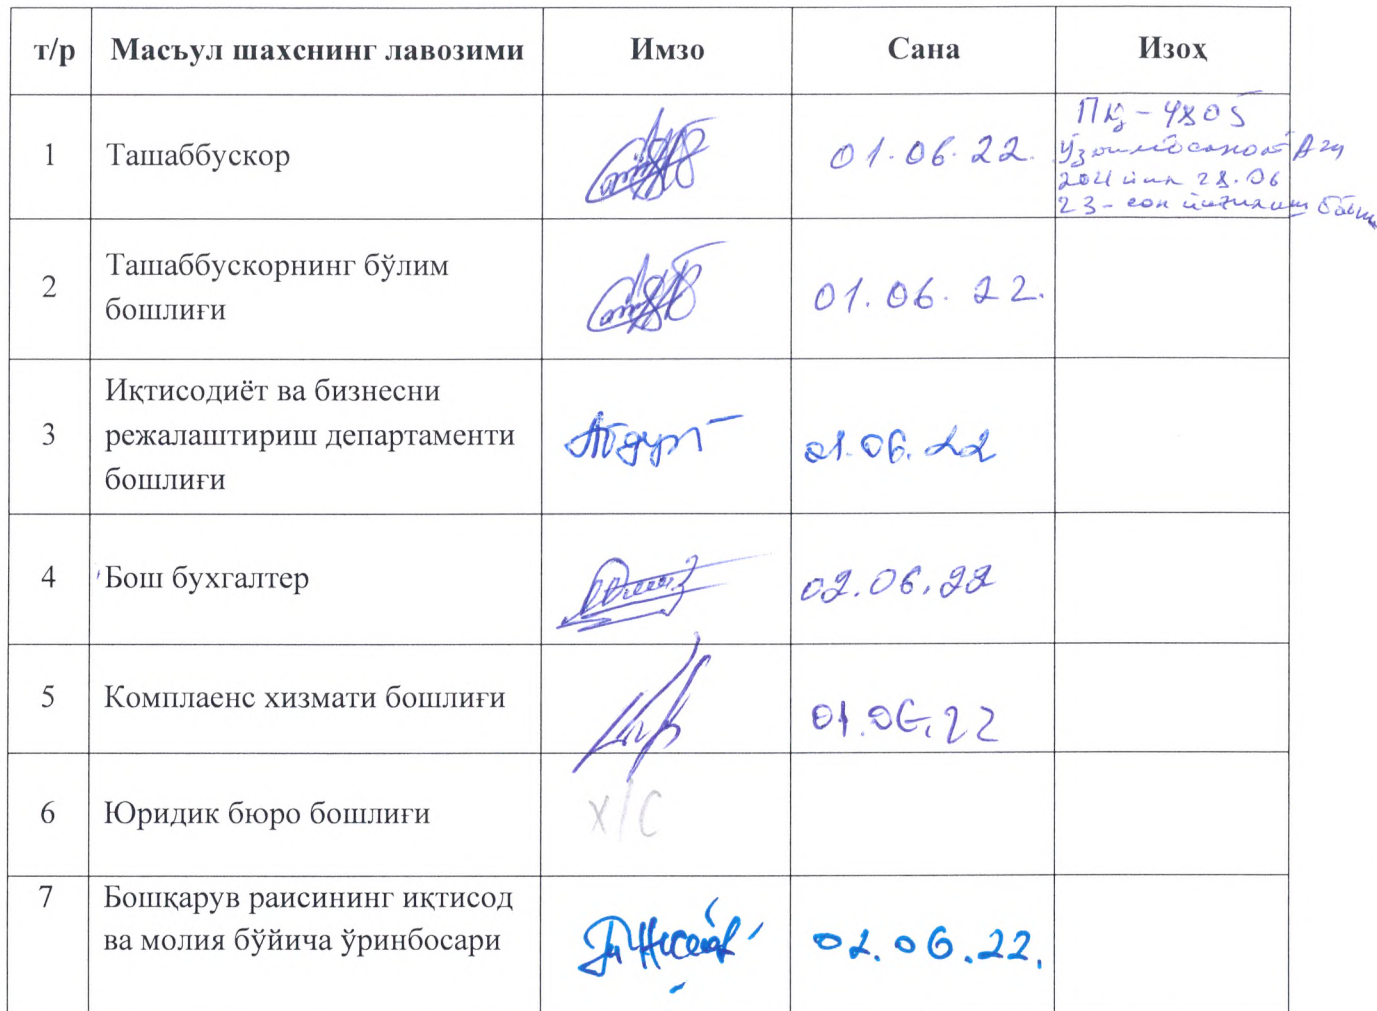 т/р Масъул шахснинг лавозими Имзо Сана Изоҳ
1 Ташаббускор 01.06.22. ПҚ-4805
2021 йил 28.06
23-сон йиғилиш баёни
2 Ташаббускорнинг бўлим
бошлиғи 01.06.22.
3 Иқтисодиёт ва бизнесни
режалаштириш департаменти
бошлиғи 01.06.22
4 Бош бухгалтер 02.06.22
5 Комплаенс хизмати бошлиғи 01.06.22
6 Юридик бюро бошлиғи х/с
7 Бошқарув раисининг иқтисод
ва молия бўйича ўринбосари 02.06.22.